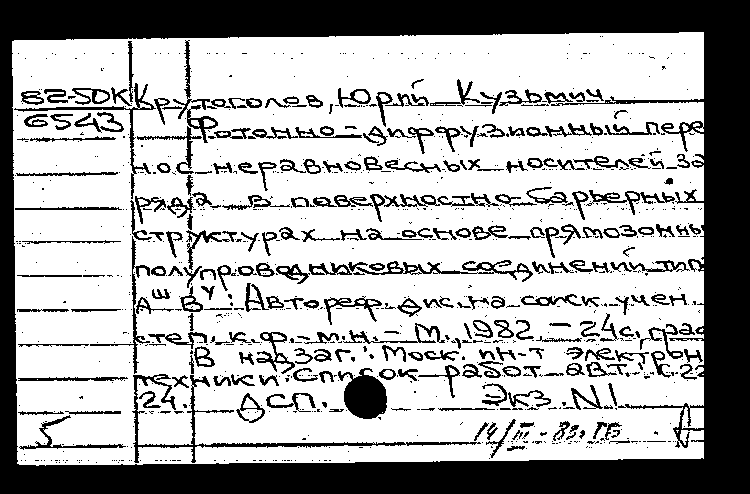 82-5DK Крутоголов, Юрий Кузьмич.
6543 Фотонно-диффузионный пере
нос неравновесных носителей за
ряда в поверхностно-барьерных
структурах на основе прямозонны
полупроводниковых соединений тип
A^III B^V: Автореф. дис. на соиск. учен.
степ. к.ф.-м.н. - М., 1982 - 24 с., граф
В надзаг.: Моск. ин-т электрон
техники. Список работ авт.: с. 22
24. ДСП. Экз. N1.
5 14/III-83. ГБ